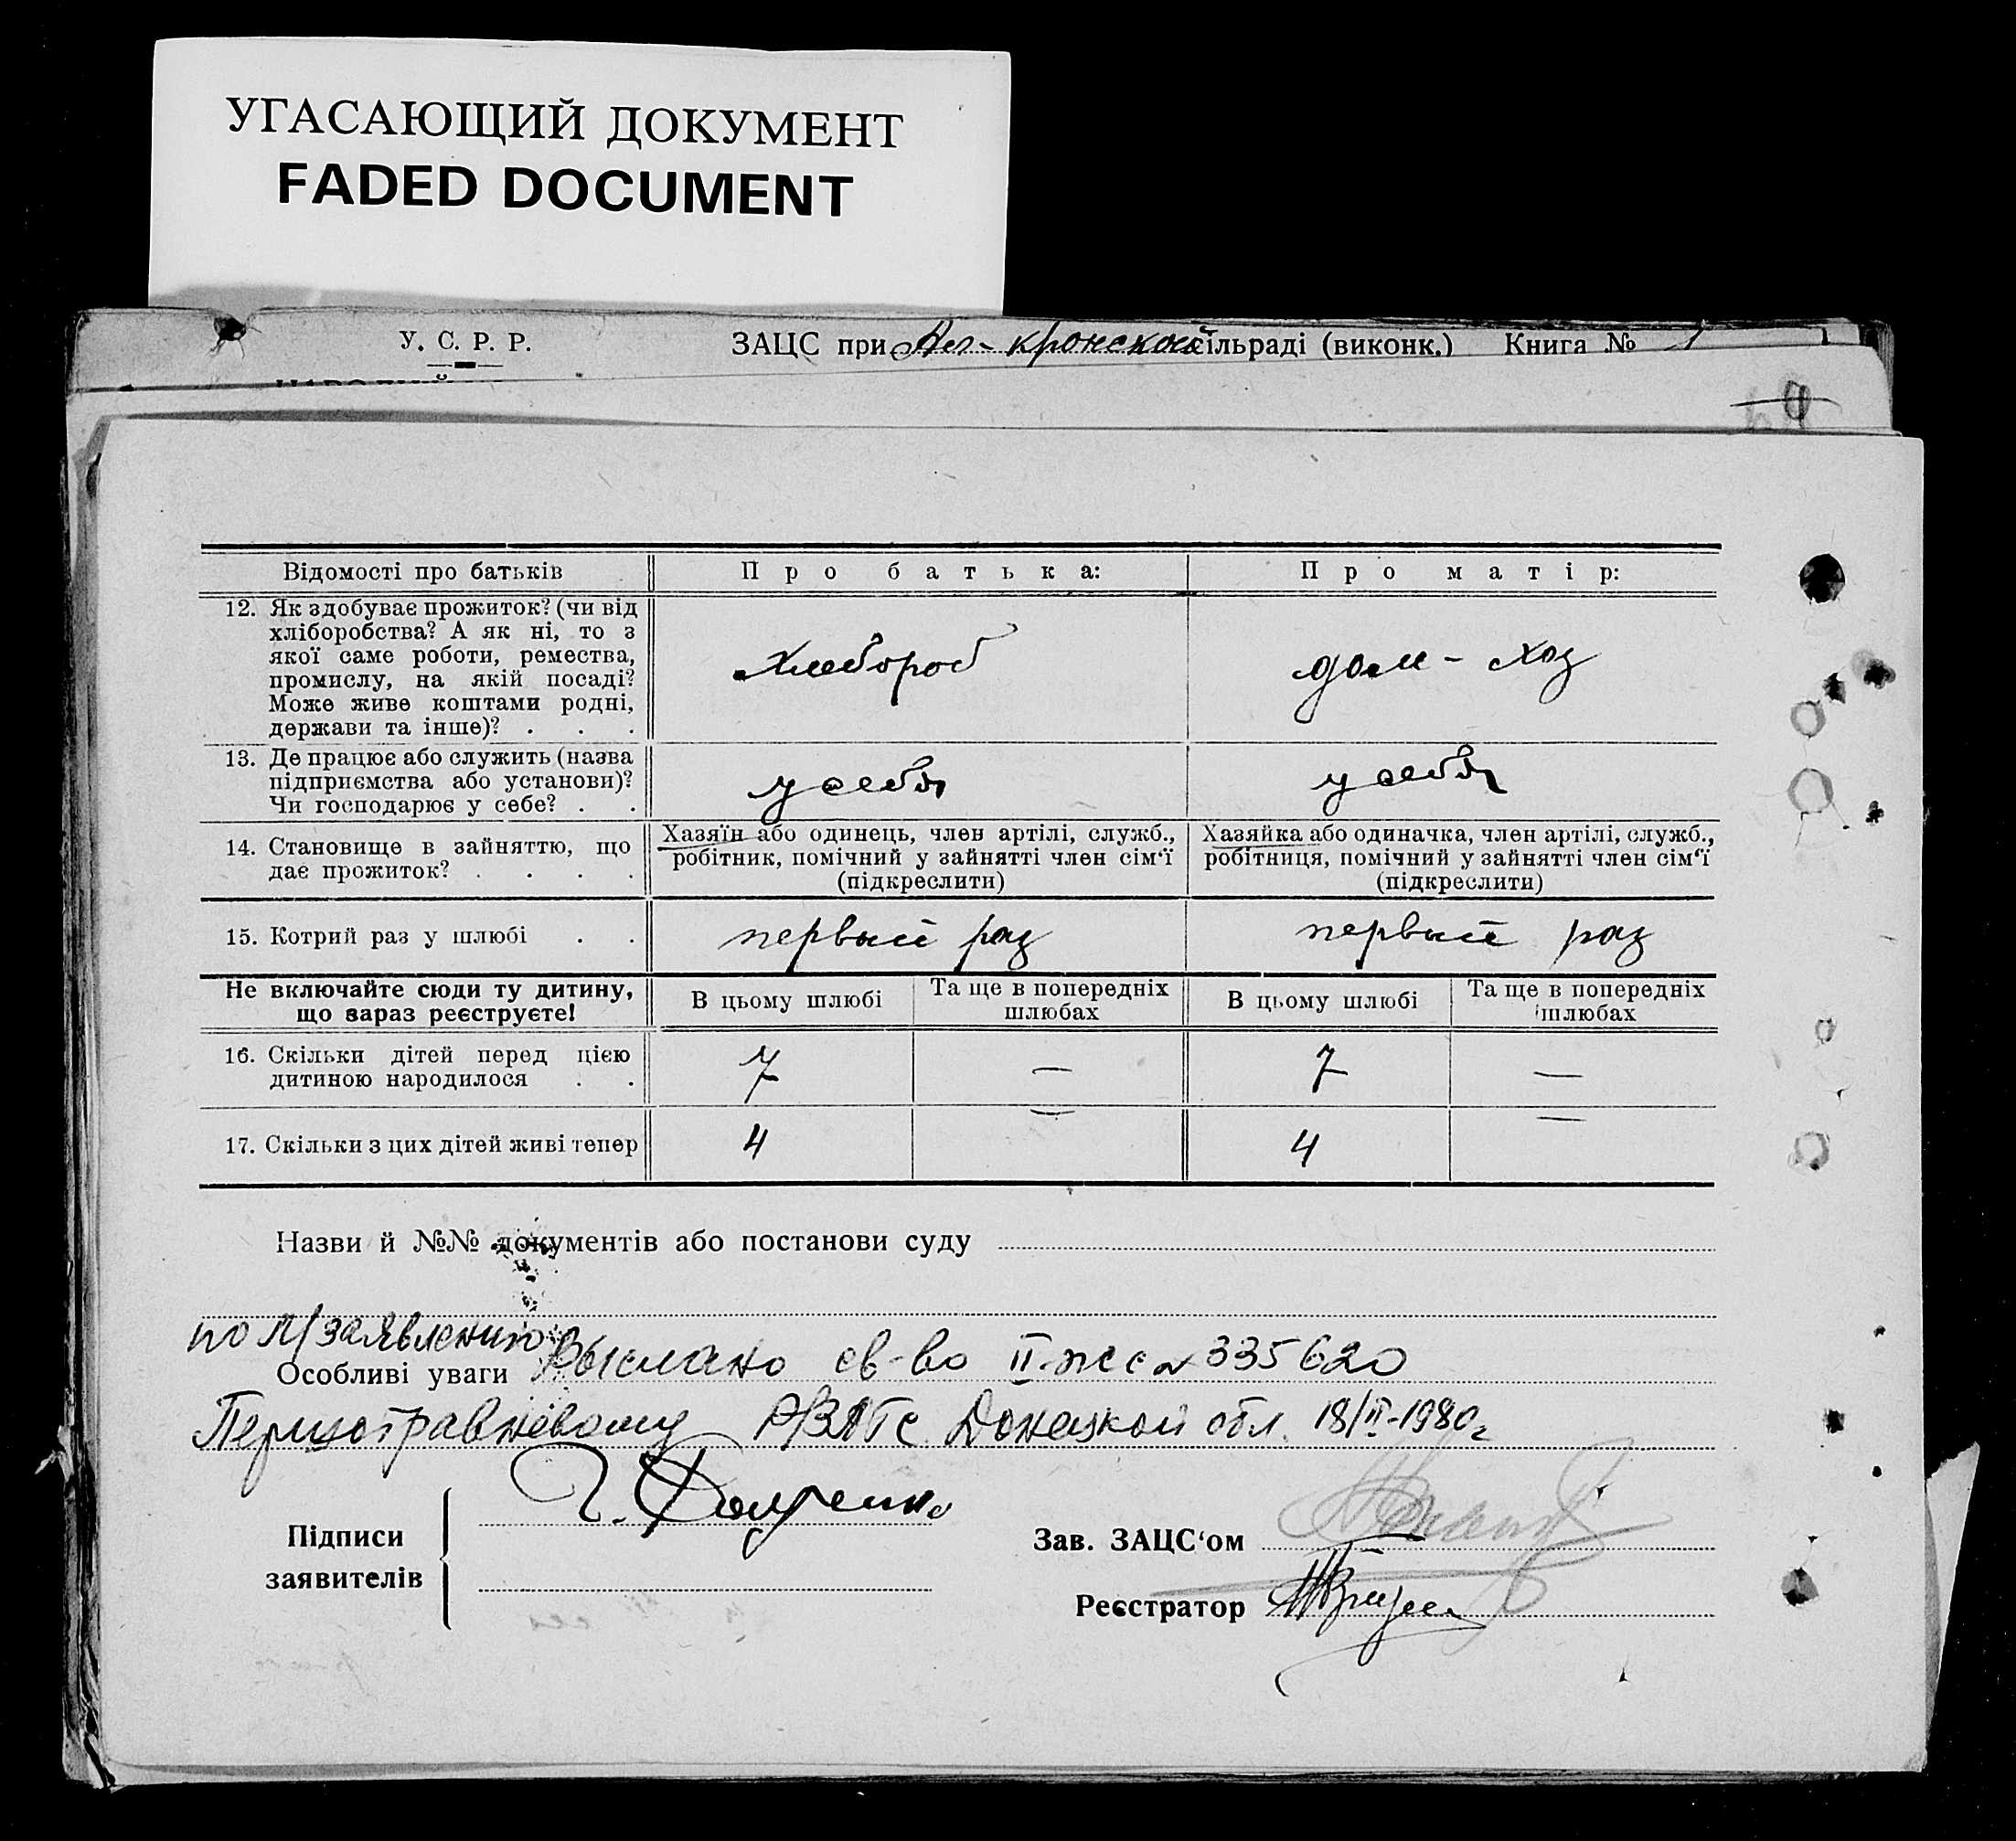 УГАСАЮЩИЙ ДОКУМЕНТ
FADED DOCUMENT
У. С. Р. Р.
ЗАЦС при сільраді (виконк.) Книга № 1
Відомості про батьків
Про батька:
Про матір:
12. Як здобуває прожиток? (чи від
хліборобства? А як ні, то з
якої саме роботи, ремества,
промислу, на якій посаді?
Може живе коштами родні,
держави та інше)? . . .
Хлебороб
дом-хоз
13. Де працює або служить (назва
підприємства або установи)?
Чи господарює у себе? . .
у себя
у себя
14. Становище в зайняттю, що
дає прожиток? . . . .
Хазяїн або одинець, член артілі, служб.,
робітник, помічний у зайнятті член сім‘ї
(підкреслити)
Хазяйка або одиначка, член артілі, служб.,
робітниця, помічний у зайнятті член сім‘ї
(підкреслити)
15. Котрий раз у шлюбі . .
первый раз
первый раз
Не включайте сюди ту дитину,
що зараз реєструєте!
В цьому шлюбі
Та ще в попередніх
шлюбах
В цьому шлюбі
Та ще в попередніх
шлюбах
16. Скільки дітей перед цією
дитиною народилося . .
7
—
7
—
17. Скільки з цих дітей живі тепер
4
—
4
—
Назви й №№ документів або постанови суду
по м/заявлению
Особливі уваги Выслано св-во II-ЖС № 335620
Першотравневому РЗАГС Донецкой обл. 18/II-1980г
Підписи
заявителів
Зав. ЗАЦС‘ом
Реєстратор